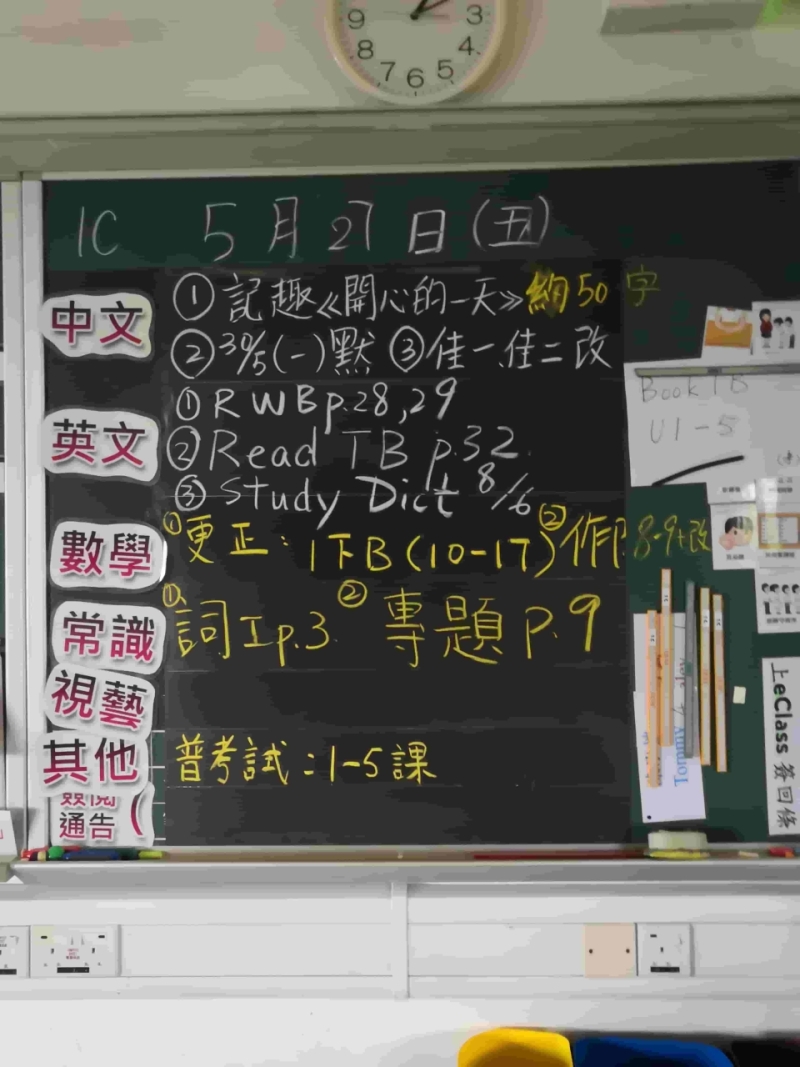 9 3
8 4
7 6 5
1C 5月27日(五)
中文
①記趣《開心的一天》約50字
②30/5(一)默 ③佳一、佳二改
英文
①RWBp.28,29
②Read TB p.32
③Study Dict 8/6
數學
①更正：1下B(10-17) ②作 8-9+改
常識
①詞工p.3 ②專題p.9
視藝
其他
普考試：1-5課
簽閱
通告(
Book 1B
U1-5
上eClass 簽回條
Tommy